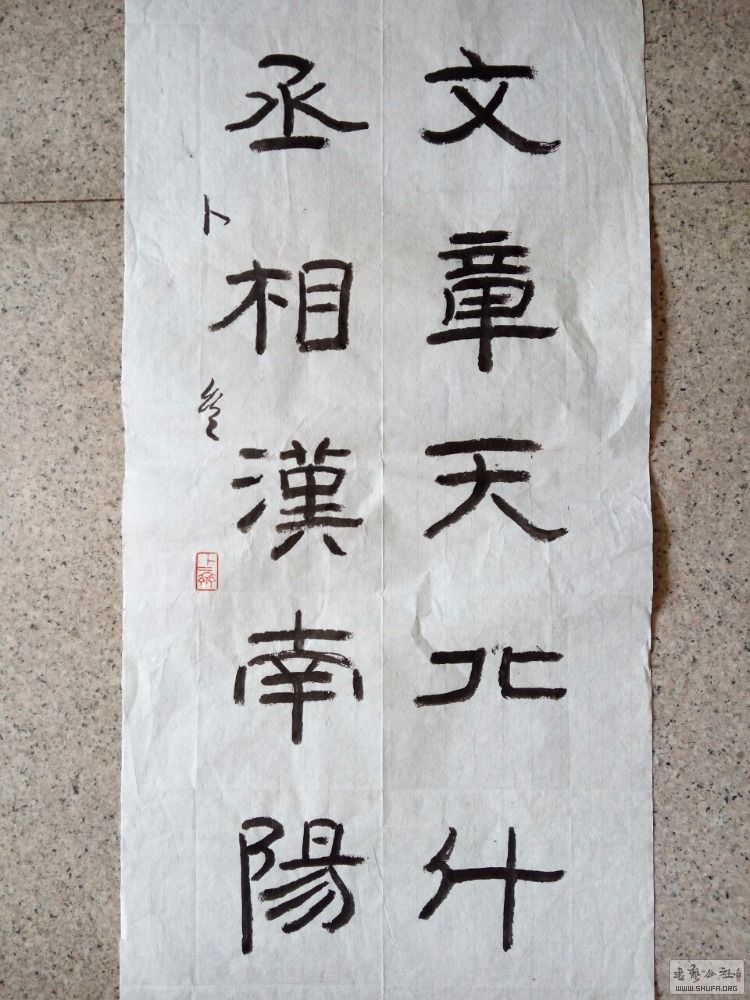 文章天北斗
丞相漢南陽
卜
書藝公社
WWW.SHUFA.ORG